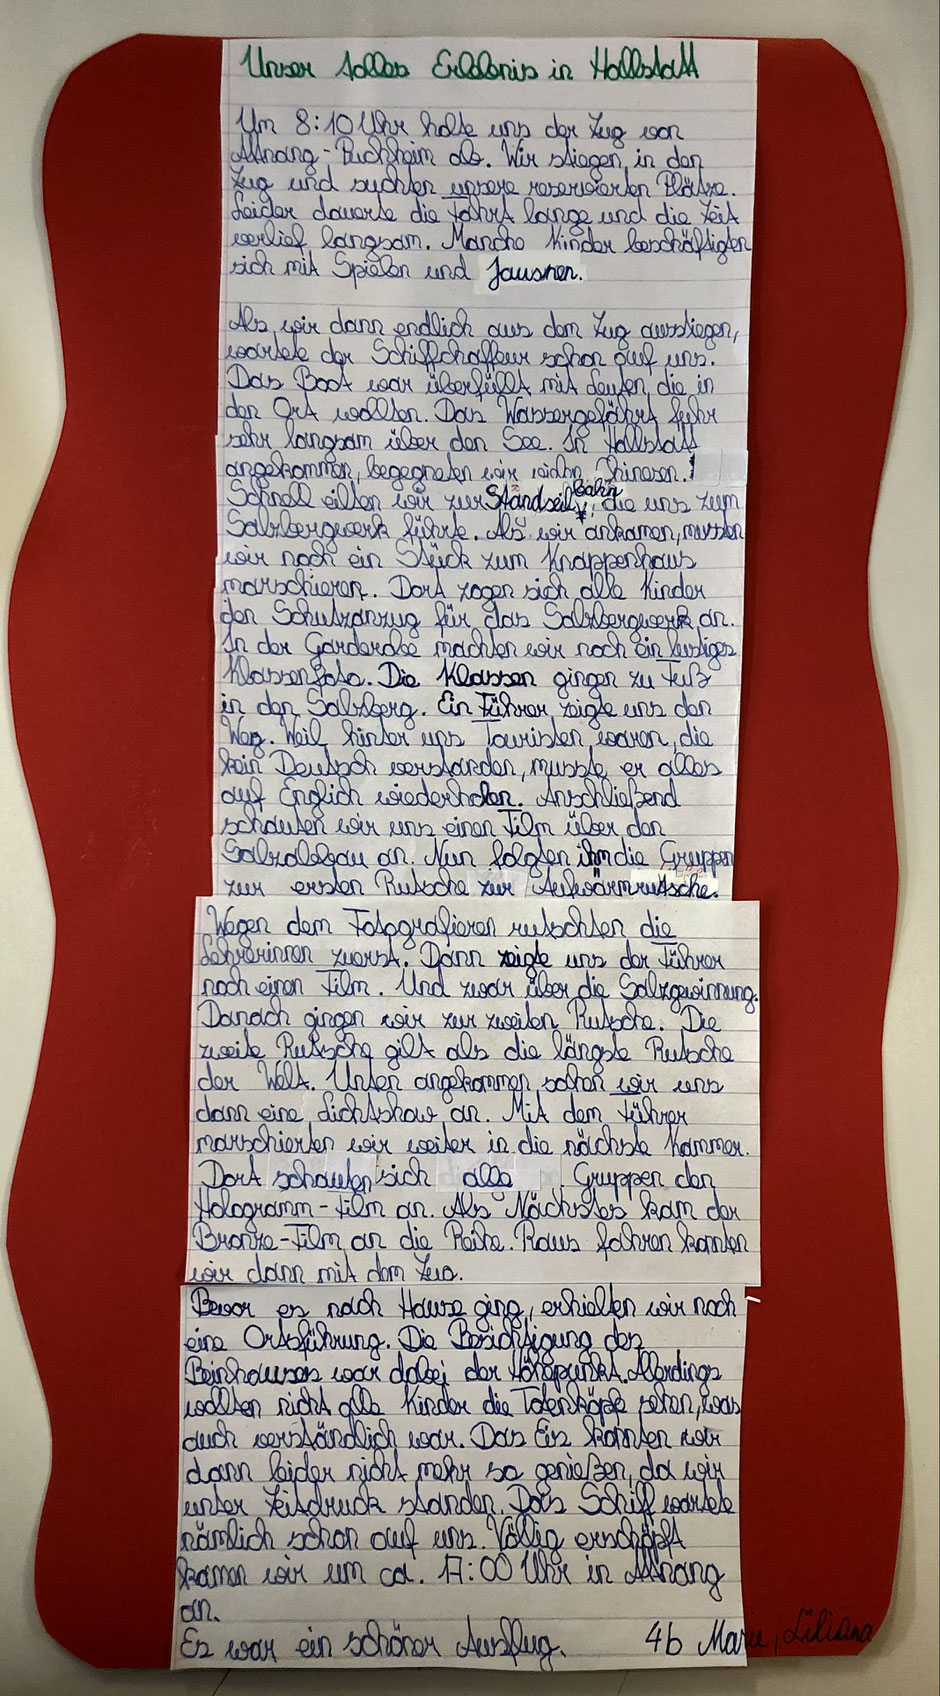 Unser tolles Erlebnis in Hallstatt
Um 8:10 Uhr holte uns der Zug von
Attnang-Puchheim ab. Wir stiegen in den
Zug und suchten unsere reservierten Plätze.
Leider dauerte die Fahrt lange und die Zeit
verlief langsam. Manche Kinder beschäftigten
sich mit Spielen und Jausnen.
Als wir dann endlich aus dem Zug ausstiegen,
wartete der Schiffchaffeur schon auf uns.
Das Boot war überfüllt mit Leuten die in
den Ort wollten. Das Wassergefährt fuhr
sehr langsam über den See. In Hallstatt
angekommen, begegneten wir vielen Chinesen!
Schnell eilten wir zur Standseilbahn, die uns zum
Salzbergwerk führte. Als wir ankamen, mussten
wir noch ein Stück zum Knappenhaus
marschieren. Dort zogen sich alle Kinder
den Schutzanzug für das Salzbergwerk an.
In der Garderobe machten wir noch ein lustiges
Klassenfoto. Die Klassen gingen zu Fuß
in den Salzberg. Ein Führer zeigte uns den
Weg. Weil hinter uns Touristen waren, die
kein Deutsch verstanden, musste er alles
auf Englich wiederholen. Anschließend
schauten wir uns einen Film über den
Salzabbau an. Nun folgten ihm die Gruppen
zur ersten Rutsche zur Aufwärmrutsche.
Wegen dem Fotografieren rutschten die
Lehrerinnen zuerst. Dann zeigte uns der Führer
noch einen Film. Und zwar über die Salzgewinnung.
Danach gingen wir zur zweiten Rutsche. Die
zweite Rutsche gilt als die längste Rutsche
der Welt. Unten angekommen sahen wir uns
dann eine Lichtshow an. Mit dem Führer
marschierten wir weiter in die nächste Kammer.
Dort schauten sich alle Gruppen den
Hologramm-Film an. Als Nächstes kam der
Bronze-Film an die Reihe. Raus fahren konnten
wir dann mit dem Zug.
Bevor es nach Hause ging, erhielten wir noch
eine Ortsführung. Die Besichtigung des
Beinhauses war dabei der Höhepunkt. Allerdings
wollten nicht alle Kinder die Totenköpfe sehen, was
auch verständlich war. Das Eis konnten wir
dann leider nicht mehr so genießen, da wir
unter Zeitdruck standen. Das Schiff wartete
nämlich schon auf uns. Völlig erschöpft
kamen wir um ca. 17:00 Uhr in Attnang
an.
Es war ein schöner Ausflug. 4b Marie, Liliana